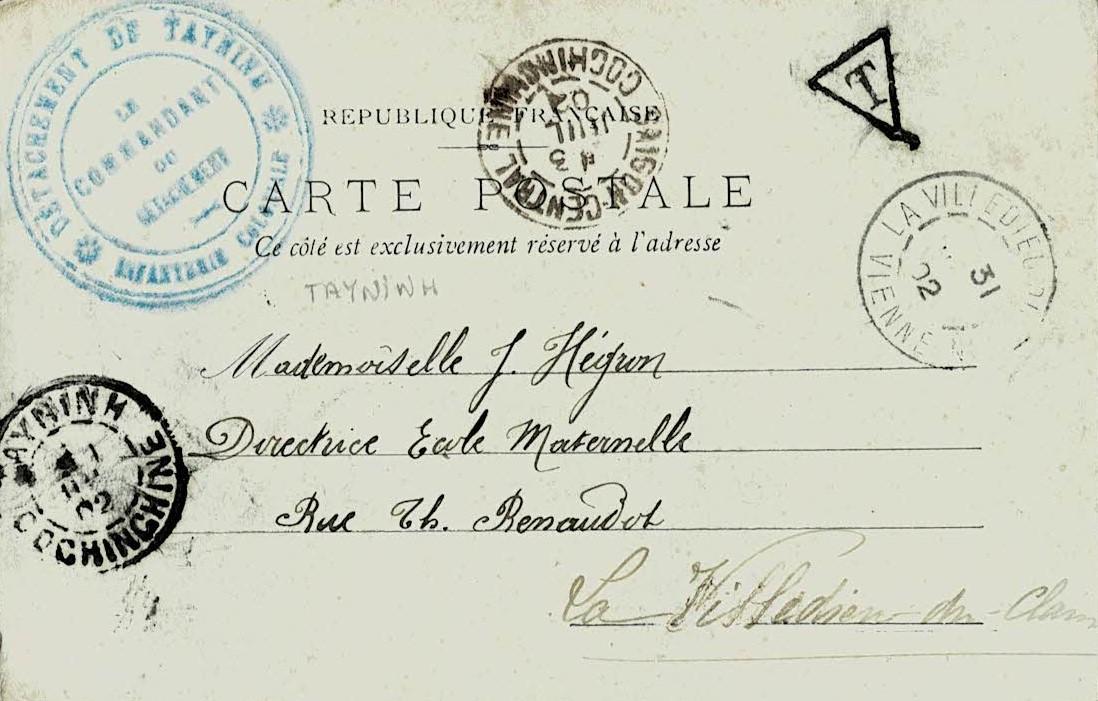 DÉTACHEMENT DE TAYNINH
INFANTERIE COLONIALE
LE
COMMANDANT
DU
DÉTACHEMENT
COCHINCHINE
SAIGON-CENTRAL
JUIL
02
T
REPUBLIQUE FRANÇAISE
CARTE POSTALE
Ce côté est exclusivement réservé à l'adresse
LA VILLEDIEU-DU
VIENNE
31
02
TAYNINH
Mademoiselle J. Hégron
Directrice Ecole Maternelle
Rue Th. Renaudot
La Villedieu-du-Clain
TAYNINH
COCHINCHINE
02